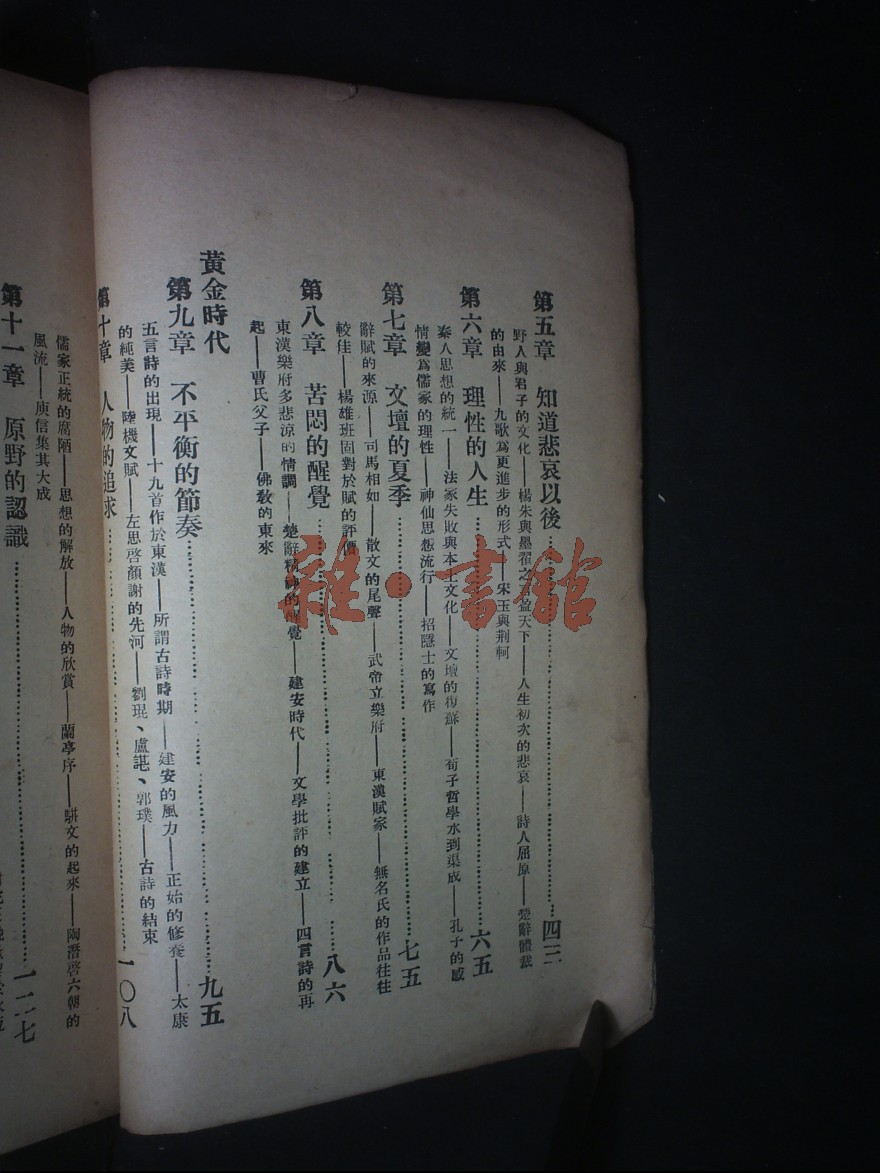 第五章 知道悲哀以後 四三
野人與君子的文化——楊朱與墨翟之言盈天下——人生初次的悲哀——詩人屈原——楚辭體裁
的由來——九歌為更進步的形式——宋玉與荆軻
第六章 理性的人生 六五
秦人思想的統一——法家失敗與本土文化——文壇的復蘇——荀子哲學水到渠成——孔子的感
情變為儒家的理性——神仙思想流行——招隱士的寫作
第七章 文壇的夏季 七五
辭賦的來源——司馬相如——散文的尾聲——武帝立樂府——東漢賦家——無名氏的作品往往
較佳——楊雄班固對於賦的評價
第八章 苦悶的醒覺 八六
東漢樂府多悲涼的情調——楚辭精神的醒覺——建安時代——文學批評的建立——四言詩的再
起——曹氏父子——佛教的東來
黃金時代
第九章 不平衡的節奏 九五
五言詩的出現——十九首作於東漢——所謂古詩時期——建安的風力——正始的修養——太康
的純美——陸機文賦——左思啓顏謝的先河——劉琨、盧諶、郭璞——古詩的結束
第十章 人物的追求 一〇八
儒家正統的腐陋——思想的解放——人物的欣賞——蘭亭序——駢文的起來——陶潛啓六朝的
風流——庾信集其大成
第十一章 原野的認識 一二七
雜·書館